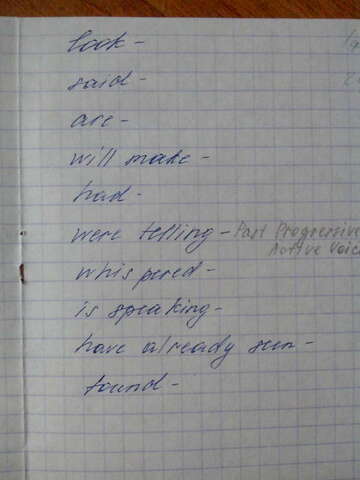 look -
said -
are -
will make -
had -
were telling - Past Progressive
Active Voice
whispered -
is speaking -
have already seen -
found -